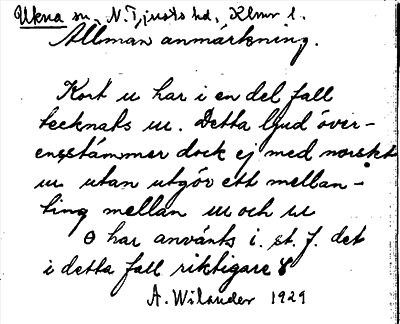 Ukna sn, N. Tjusts hd, Klmr l.
Allmän anmärkning.
Kort u har i en del fall
tecknats u. Detta ljud över-
ensstämmer dock ej med norskt
u utan utgör ett mellan-
ting mellan u och u
ɵ har använts i. st. f. det
i detta fall riktigare 8
A. Wilander 1929